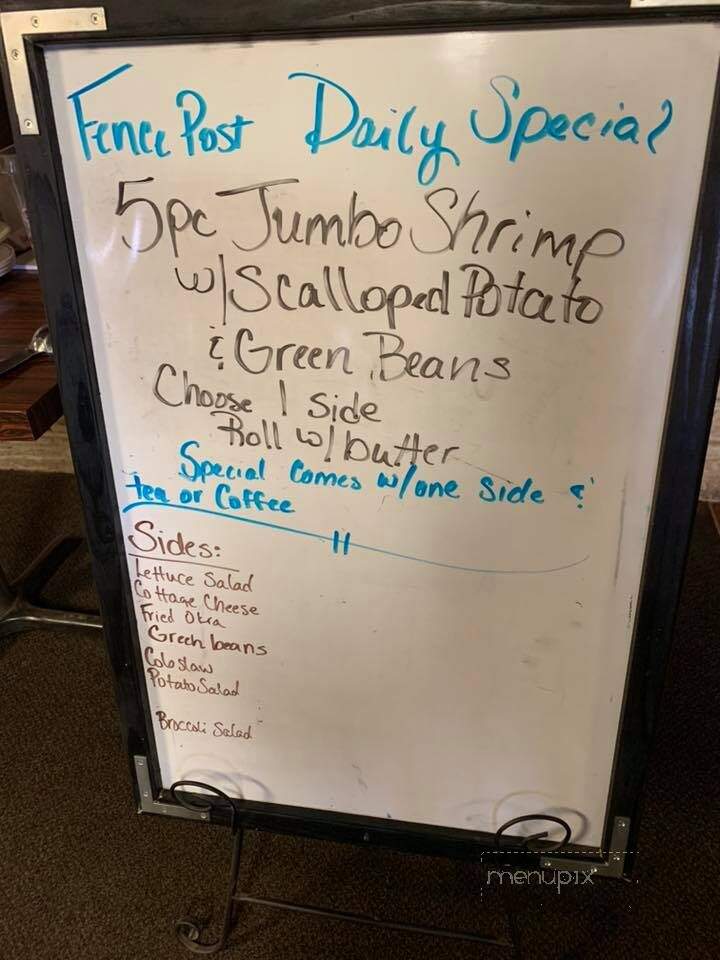 Fence Post Daily Special
5pc Jumbo Shrimp
w/Scalloped Potato
& Green Beans
Choose 1 Side
Roll w/butter
Special Comes w/one Side &
tea or Coffee
Sides:
Lettuce Salad
Cottage Cheese
Fried Okra
Green beans
Coloslaw
Potato Salad
Broccoli Salad
menupix